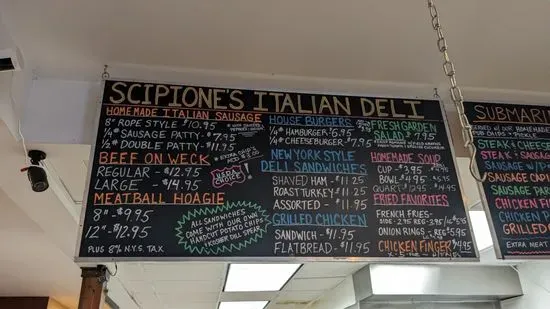 SCIPIONE'S ITALIAN DELI
HOMEMADE ITALIAN SAUSAGE
8" ROPE STYLE $10.95
¼# SAUSAGE PATTY - $7.95
½# DOUBLE PATTY - $11.95
BEEF ON WECK
REGULAR - $12.95
LARGE - $14.95
MEATBALL HOAGIE
8" - $9.95
12" - $12.95
PLUS 8% N.Y.S. TAX
HOUSE BURGERS
¼# HAMBURGER $6.95
¼# CHEESEBURGER - $7.95
NEW YORK STYLE
DELI SANDWICHES
SHAVED HAM - $11.25
ROAST TURKEY - $11.25
ASSORTED - $11.95
GRILLED CHICKEN
SANDWICH - $11.95
FLATBREAD - $11.95
ALL SANDWICHES
COME WITH OUR OWN
HARDCUT POTATO CHIPS
& KOSHER DILL SPEAR
FRESH GARDEN
SALAD
HOMEMADE SOUP
CUP - $3.95
BOWL - $4.95
QUART - $12.95
FRIED FAVORITES
FRENCH FRIES -
ONION RINGS -
CHICKEN FINGER
SUBMARI
STEAK & CHEESE
STEAK & SAUSAG
STEAK & CAPI
SAUSAGE
SAUSAGE PAT
CHICKEN FING
CHICKEN
EXTRA MEAT